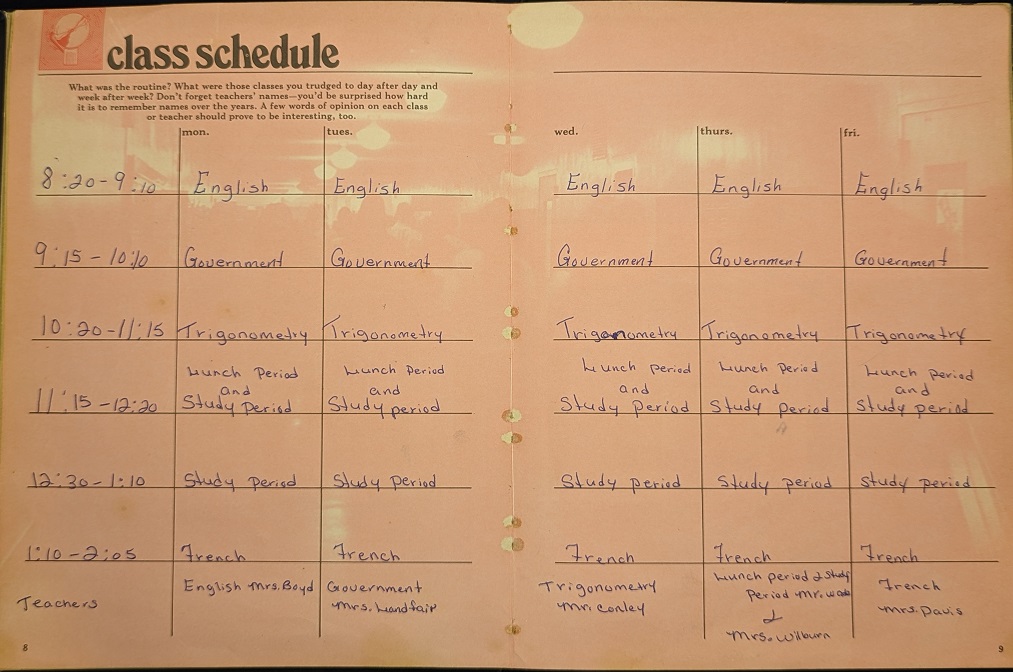 class schedule
What was the routine? What were those classes you trudged to day after day and
week after week? Don't forget teachers' names—you'd be surprised how hard
it is to remember names over the years. A few words of opinion on each class
or teacher should prove to be interesting, too.
mon. tues. wed. thurs. fri.
8:20-9:10 English English English English English
9:15-10:10 Government Government Government Government Government
10:20-11:15 Trigonometry Trigonometry Trigonometry Trigonometry Trigonometry
Lunch Period Lunch Period Lunch period Lunch Period Lunch period
and and and and and
11:15-12:20 Study Period Study period Study period Study period Study period
12:30-1:10 Study period Study period Study period Study period Study period
1:10-2:05 French French French French French
Teachers
English Mrs. Boyd
Government
Mrs. Landfair
Trigonometry
Mr. Conley
Lunch period & Study
Period Mr.
&
Mrs. Wilburn
French
Mrs. Davis
8 9